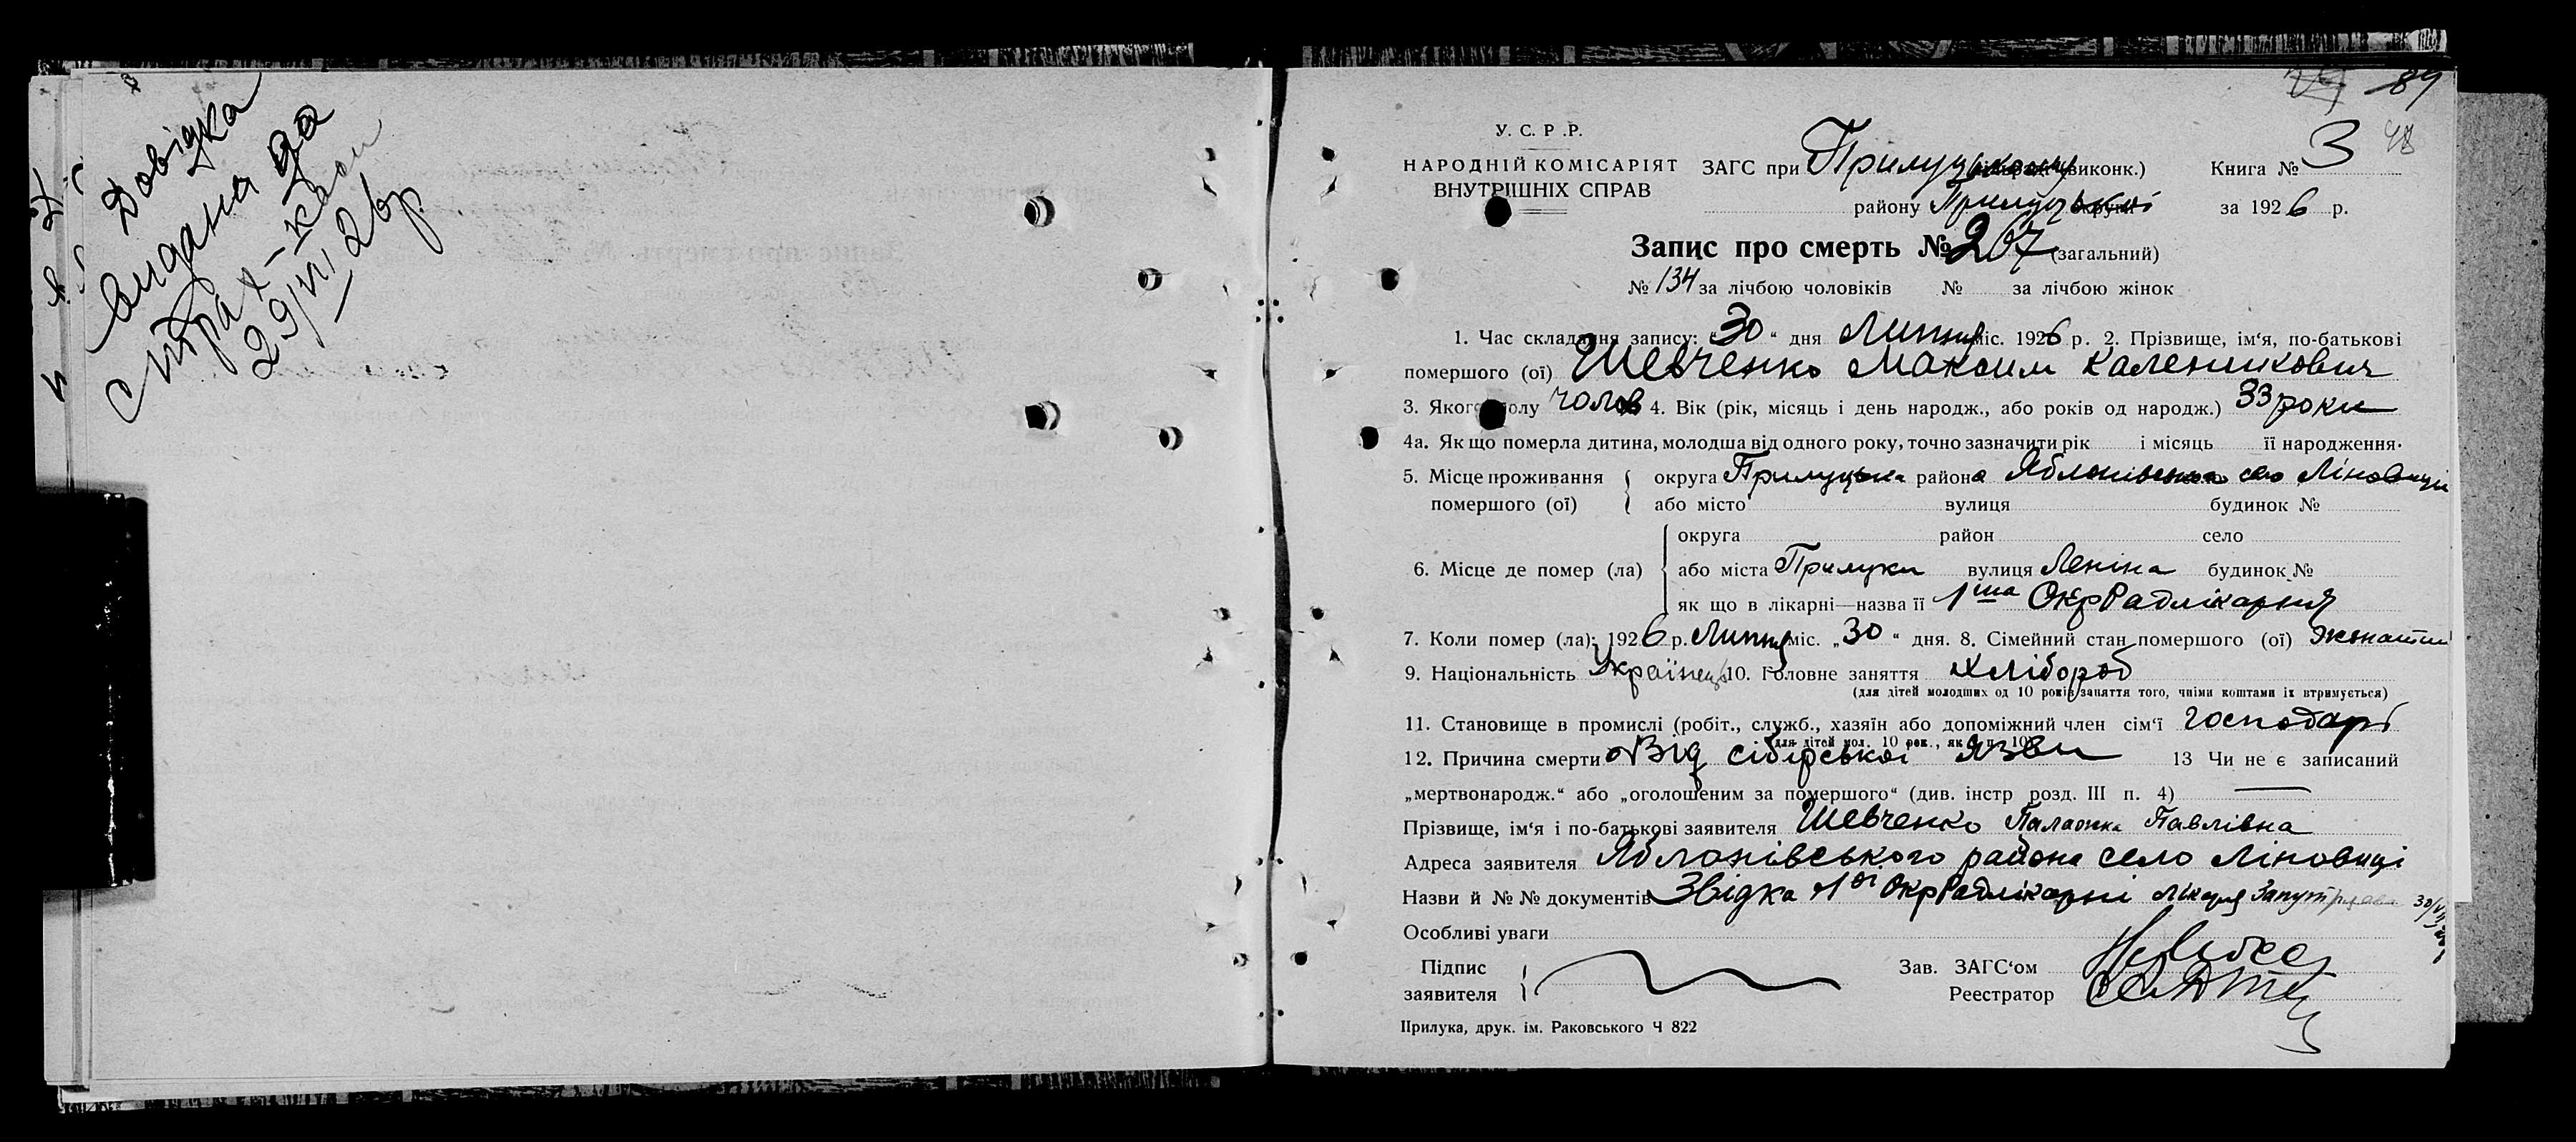 Довідка
видана до
страх-каси
29/VII 26 р
89
48
У. С. Р. Р.
НАРОДНІЙ КОМІСАРІЯТ
ВНУТРІШНІХ СПРАВ
ЗАГС при Прилуцькому виконк.)
району Прилуцької округи
Книга № 3
за 1926 р.
Запис про смерть № 267 (загальний)
№ 134 за лічбою чоловіків № за лічбою жінок
1. Час складання запису: „30“ дня Липня міс. 1926 р. 2. Прізвище, ім‘я, по-батькові
помершого (ої) Шевченко Максим Каленикович
3. Якого полу чолов 4. Вік (рік, місяць і день народж., або років од народж.) 33 роки
4а. Як що померла дитина, молодша від одного року, точно зазначити рік і місяць її народження.
5. Місце проживання помершого (ої) округа Прилуцька района Яблонівського село Ліновиці
або місто вулиця будинок №
6. Місце де помер (ла) округа район село
або міста Прилуки вулиця Леніна будинок №
як що в лікарні—назва її 1ша ОкрРадлікарня
7. Коли помер (ла): 1926 р. Липня міс. „30“ дня. 8. Сімейний стан помершого (ої) жонатий
9. Національність Українець 10. Головне заняття Хлібороб
(для дітей молодших од 10 років заняття того, чиїми коштами їх втримується)
11. Становище в промислі (робіт., служб., хазяїн або допоміжний член сім‘ї господарь
(для дітей мол. 10 рок., як в п. 10)
12. Причина смерти Від сібірської язви 13 Чи не є записаний
„мертвонародж.“ або „оголошеним за помершого“ (див. інстр розд. III п. 4) —
Прізвище, ім‘я і по-батькові заявителя Шевченко Палажка Павлівна
Адреса заявителя Яблонівського района село Ліновиці
Назви й №№ документів Звідка 1ої ОкрРадлікарні лікаря 30/VII
Особливі уваги
Підпис заявителя
Зав. ЗАГС‘ом
Реестратор
Прилука, друк. ім. Раковського Ч 822